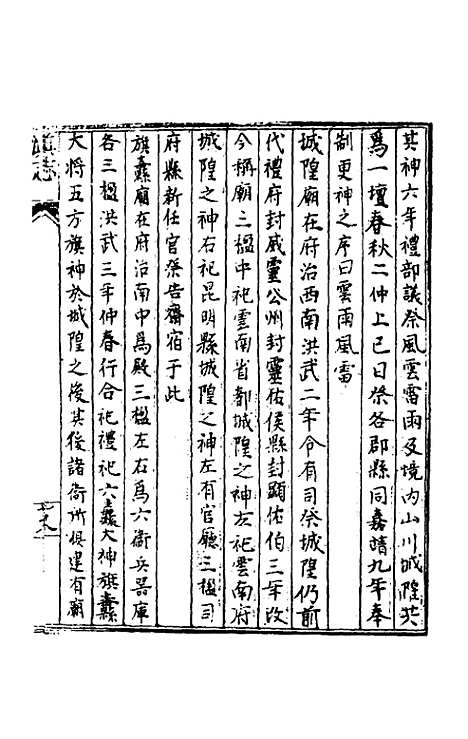 其神六年禮部議祭風雲雷雨及境內山川城隍共
爲一壇春秋二仲上巳日祭各郡縣同嘉靖九年奉
制更神之序曰雲雨風雷
城隍廟在府治西南洪武二年令有司祭城隍仍前
代禮府封威靈公州封靈佑侯縣封顯佑伯三年改
今稱廟三楹中祀雲南省都城隍之神左祀雲南府
城隍之神右祀昆明縣城隍之神左有官廳三楹司
府縣新任官祭告齋宿于此
旗纛廟在府治南中爲殿三楹左右爲六衞兵器庫
各三楹洪武三年仲春行合祀禮祀六纛大神旗纛
大将五方旗神於城隍之後其後諸衞所俱建有廟